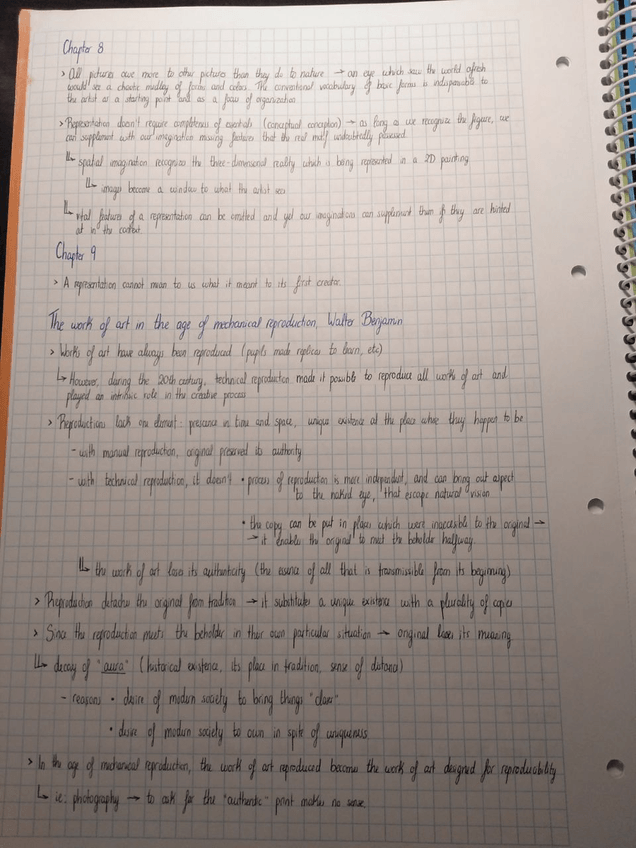 Chapter 8
> All pictures owe more to other pictures than they do to nature → an eye which saw the world afresh
would see a chaotic medley of forms and colors. The conventional vocabulary of basic forms is indispensable to
the artist as a starting point and as a focus of organization.
> Representation doesn't require completeness of essentials (conceptual conception) → as long as we recognize the figure, we
can supplement with our imagination missing features that the real motif undoubtedly possessed.
↳ spatial imagination recognizes the three-dimensional reality which is being represented in a 2D painting
↳ images become a window to what the artist sees
↳ vital features of a representation can be omitted and yet our imaginations can supplement them if they are hinted
at in the context.
Chapter 9
> A representation cannot mean to us what it meant to its first creator.
The work of art in the age of mechanical reproduction, Walter Benjamin
> Works of art have always been reproduced (pupils made replicas to learn, etc)
↳ However, during the 20th century, technical reproduction made it possible to reproduce all works of art and
played an intrinsic role in the creative process
> Reproductions lack one element: presence in time and space, unique existence at the place where they happen to be
- with manual reproduction, original preserved its authority
- with technical reproduction, it doesn't • process of reproduction is more independent, and can bring out aspect
to the naked eye, that escape natural vision
• the copy can be put in places which were inaccesible to the original →
→ it enables the original to meet the beholder halfway.
↳ the work of art loses its authenticity (the essence of all that is transmissible from its beginning)
> Reproduction detaches the original from tradition → it substitutes a unique existence with a plurality of copies
> Since the reproduction meets the beholder in their own particular situation → original loses its meaning
↳ decay of "aura" (historical existence, its place in tradition, sense of distance)
- reasons • desire of modern society to bring things "closer"
• desire of modern society to own in spite of uniqueness
> In the age of mechanical reproduction, the work of art reproduced becomes the work of art designed for reproducibility
↳ ie: photography → to ask for the "authentic" print makes no sense.